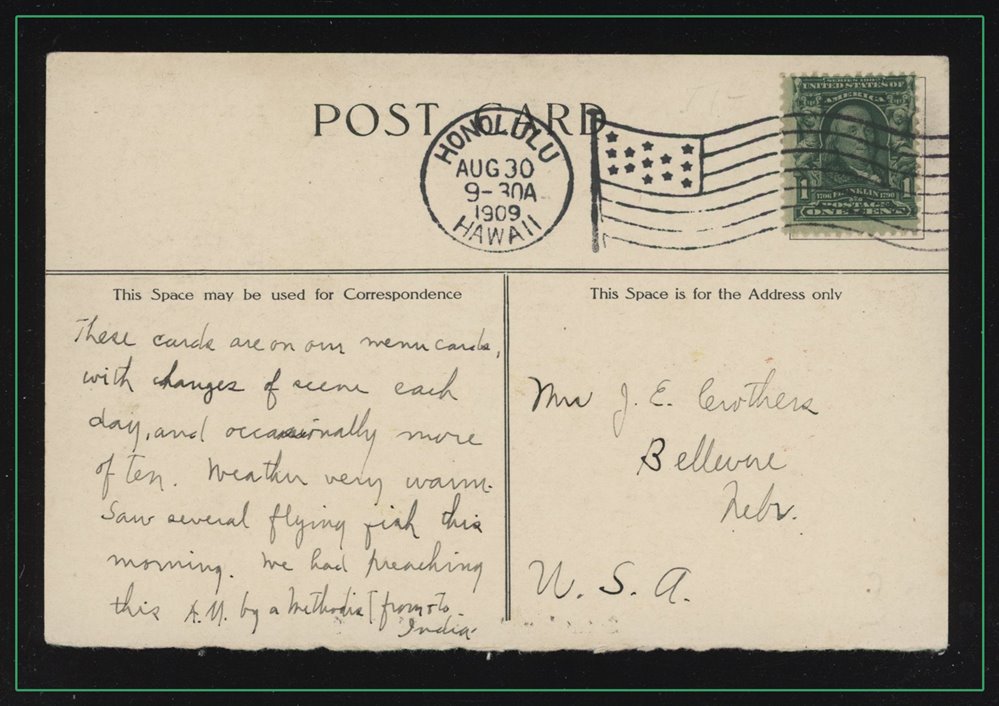 POST CARD
HONOLULU
AUG 30
9-30A
1909
HAWAII
SERIES 1902
UNITED STATES OF
AMERICA
1 1706 FRANKLIN 1790 1
POSTAGE
ONE CENT
This Space may be used for Correspondence
These cards are on our menu cards,
with changes of scene each
day, and occasionally more
often. Weather very warm.
Saw several flying fish this
morning. We had preaching
this A.M. by a Methodist from & to
India.
This Space is for the Address only
Mrs J. E. Crothers
Bellevue
Nebr.
U. S. A.